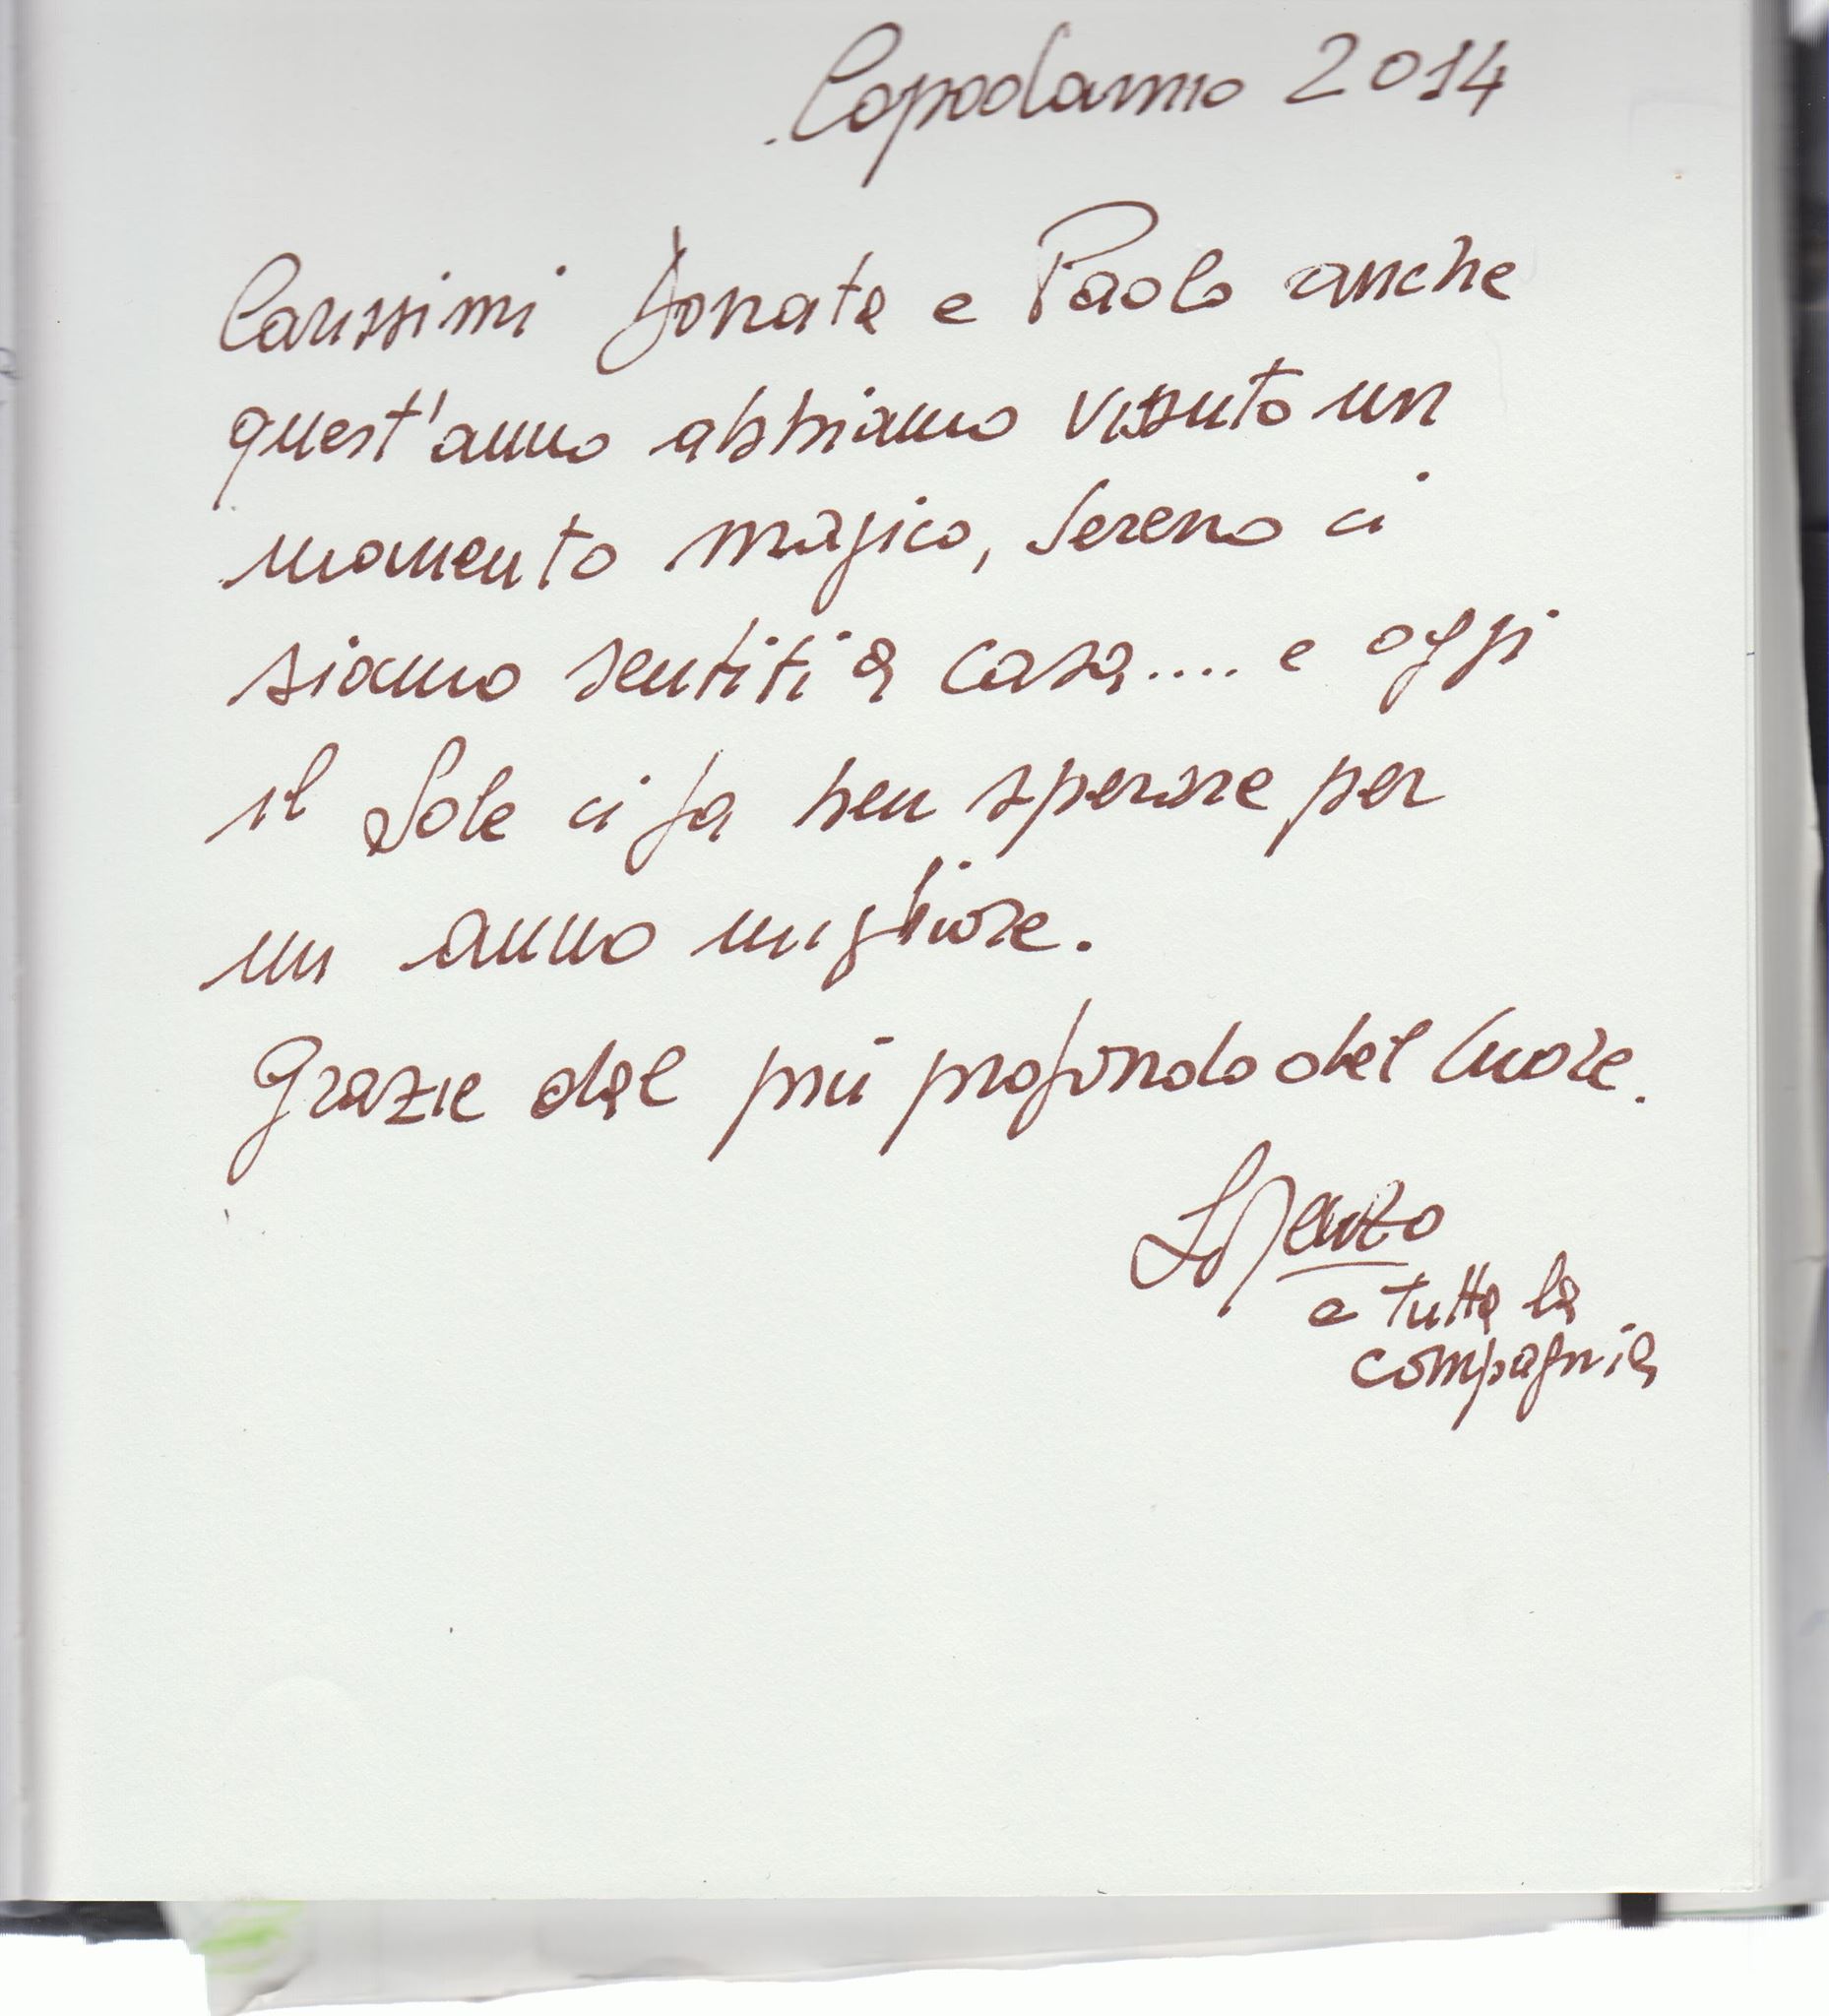 Capodanno 2014
Carissimi Donata e Paolo anche
quest'anno abbiamo vissuto un
momento magico, sereno ci
siamo sentiti a casa.... e oggi
il Sole ci fa ben sperare per
un anno migliore.
Grazie dal più profondo del cuore.
Lorenzo
e tutta la
compagnia